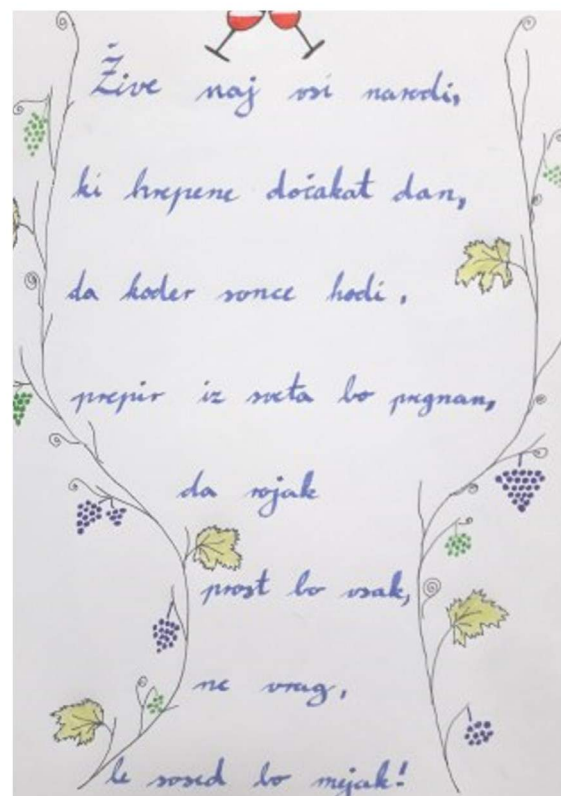 Žive naj vsi narodi,
ki hrepene dočakat dan,
da koder sonce hodi,
prepir iz sveta bo pregnan,
da rojak
prost bo vsak,
ne vrag,
le sosed bo mejak!